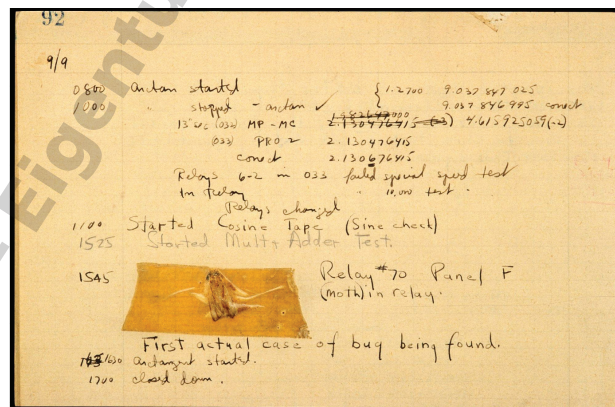 92
9/9
0800 Antan started { 1.2700 9.037 847 025
1000 " stopped - antan ✓ 9.037 846 995 conect
13" uc (032) MP - MC 2.130476415 (-3) 4.615925059(-2)
(033) PRO 2 2.130476415
conect 2.130676415
Relays 6-2 in 033 failed special speed test
In Relay " 10,000 test .
Relays changed
1100 Started Cosine Tape (Sine check)
1525 Started Mult + Adder Test.
1545 Relay #70 Panel F
(moth) in relay.
First actual case of bug being found.
1630 antangent started.
1700 closed down .
Eigentu